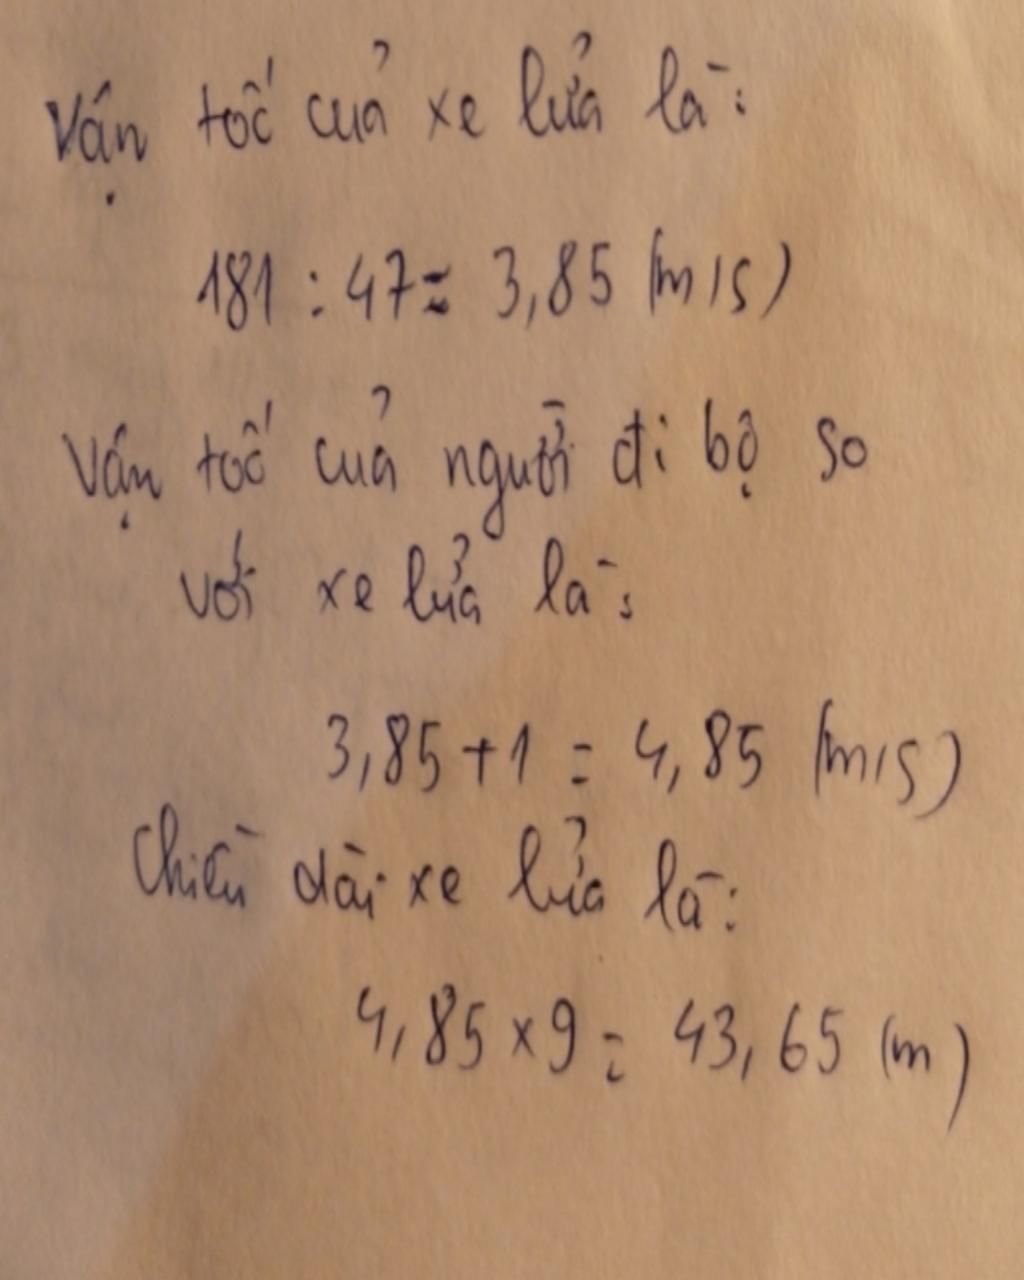 Vận tốc của xe lửa là:
181 : 47 = 3,85 (m/s)
Vận tốc của người đi bộ so
với xe lửa là:
3,85 + 1 = 4,85 (m/s)
Chiều dài xe lửa là:
4,85 x 9 = 43,65 (m)